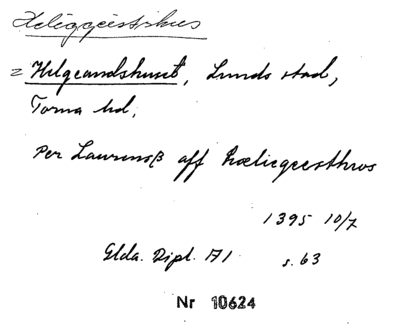 Heliggeisthus
= Helgeandshuset, Lunds stad,
Torna hd,
Per Laurensß aff Hæliegeesthws
1395 10/7
Glda. Dipl. A1 s. 63
Nr 10624